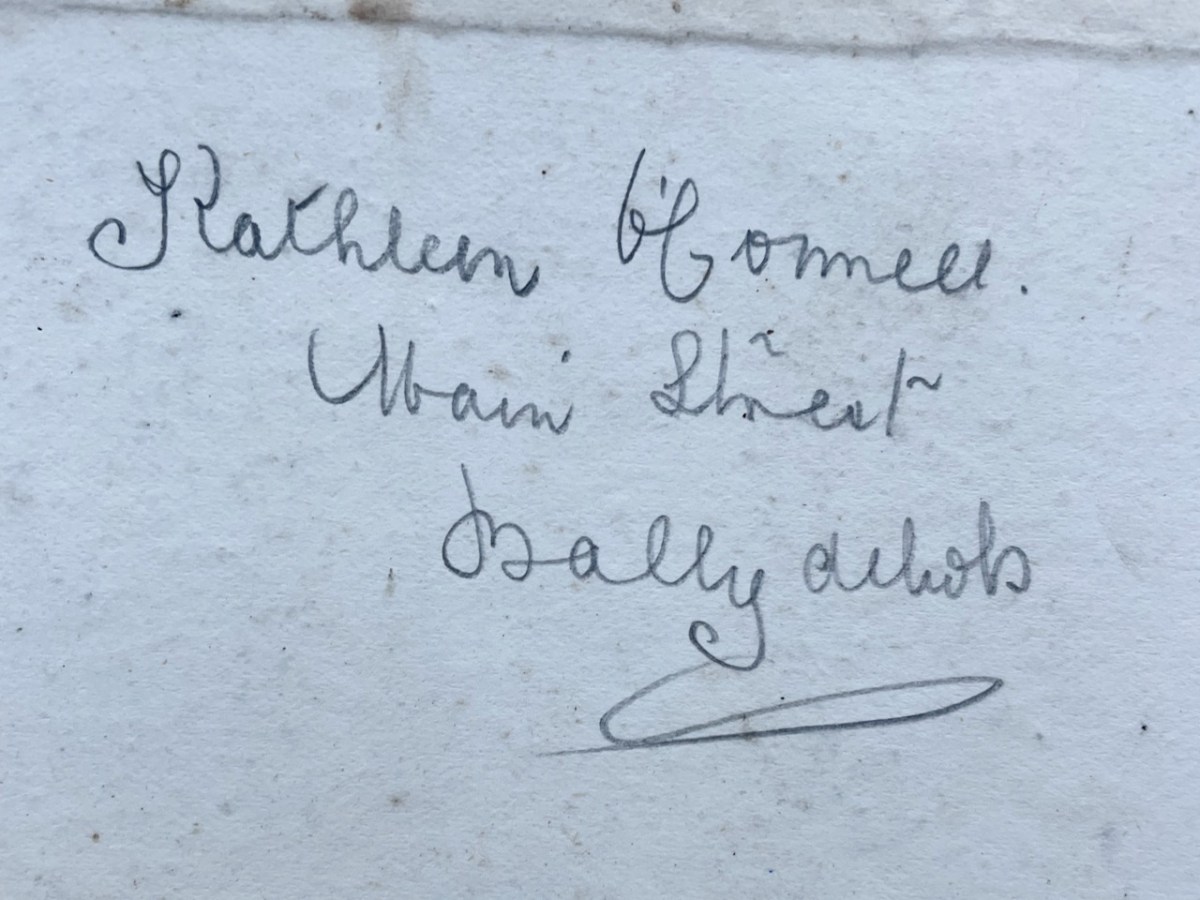 Kathleen O'Connell.
Main Street
Ballydehob